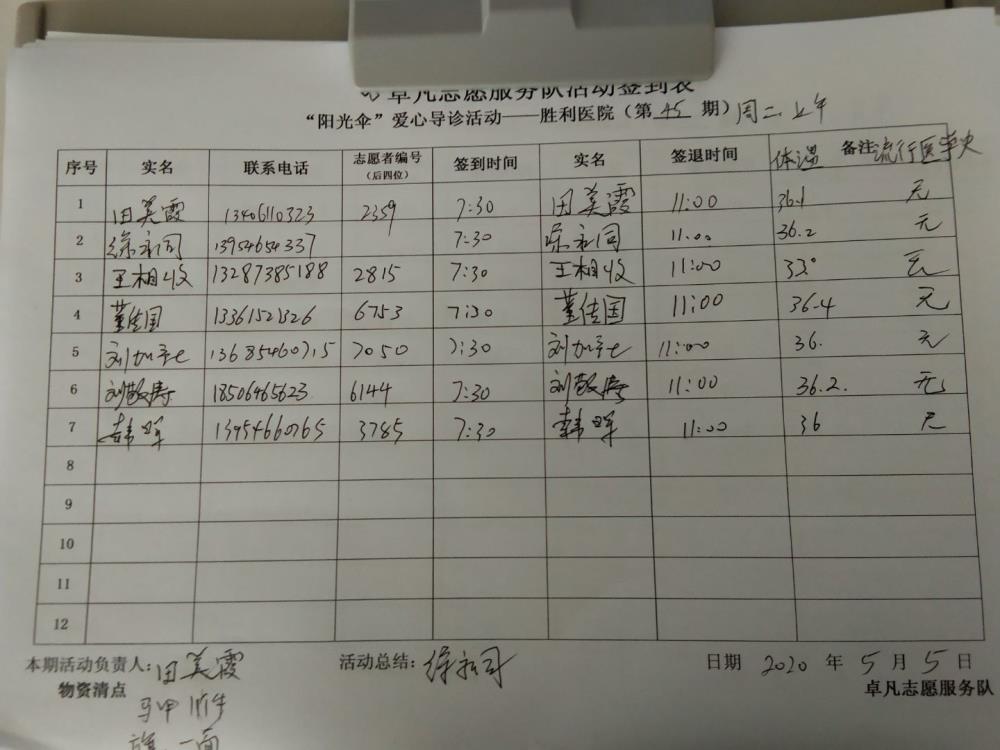 卓凡志愿服务队活动签到表
“阳光伞”爱心导诊活动——胜利医院（第 45 期）周二上午
序号 实名 联系电话 志愿者编号（后四位） 签到时间 实名 签退时间 体温 备注 流行医学史
1 田美霞 13406110323 2359 7:30 田美霞 11:00 36.1 无
2 徐永同 13954654337 7:30 徐永同 11:00 36.2 无
3 王相收 13287385188 2815 7:30 王相收 11:00 无
4 董佳国 13361521326 6753 7:30 董佳国 11:00 36.4 无
5 13685460715 7050 7:30 11:00 36. 无
6 刘敬涛 18506465623 6144 7:30 刘敬涛 11:00 36.2. 无
7 韩晖 13954660765 3785 7:30 韩晖 11:00 36 无
8
9
10
11
12
本期活动负责人：田美霞 活动总结：徐永同 日期 2020 年 5 月 5 日
物资清点 卓凡志愿服务队
马甲
旗 一面